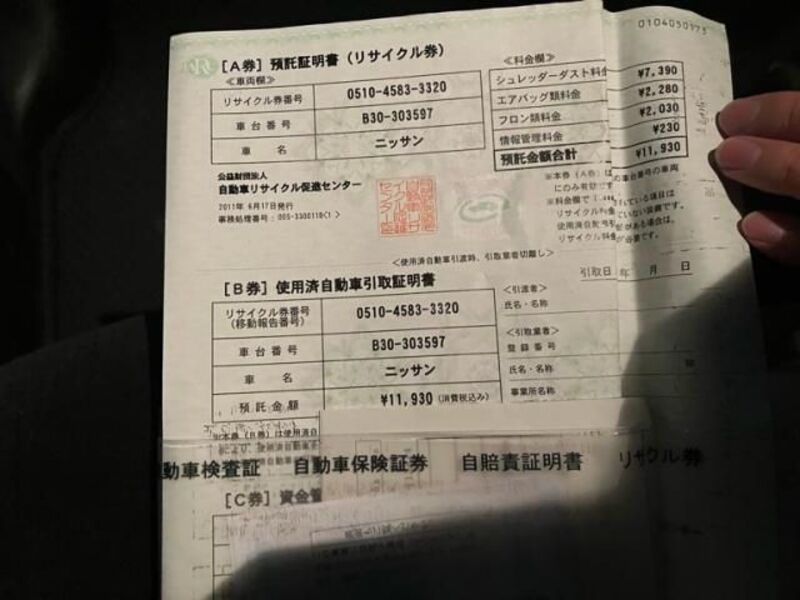 0104050975
[A券] 預託証明書 (リサイクル券)
≪車両欄≫
リサイクル券番号 0510-4583-3320
車台番号 B30-303597
車名 ニッサン
≪料金欄≫
シュレッダーダスト料金 ¥7,390
エアバッグ類料金 ¥2,280
フロン類料金 ¥2,030
情報管理料金 ¥230
預託金額合計 ¥11,930
公益財団法人
自動車リサイクル促進センター
2011年 6月17日発行
※本券 (A券) は
にのみ有効で
の車台番号の車両
※料金欄で
リサイクル料金
使用済自動車引
リサイクル料金
<使用済自動車引渡時、引取業者切離し>
[B券] 使用済自動車引取証明書
引取日 年 月 日
リサイクル券番号
(移動報告番号) 0510-4583-3320
車台番号 B30-303597
車名 ニッサン
預託金額 ¥11,930 (消費税込み)
<引渡者>
氏名・名称
<引取業者>
登録番号
氏名・名称
事業所名称
※本券 (B券) は使用済自
動車検査証 自動車保険証券 自賠責証明書 リサイクル券
[C券] 資金管